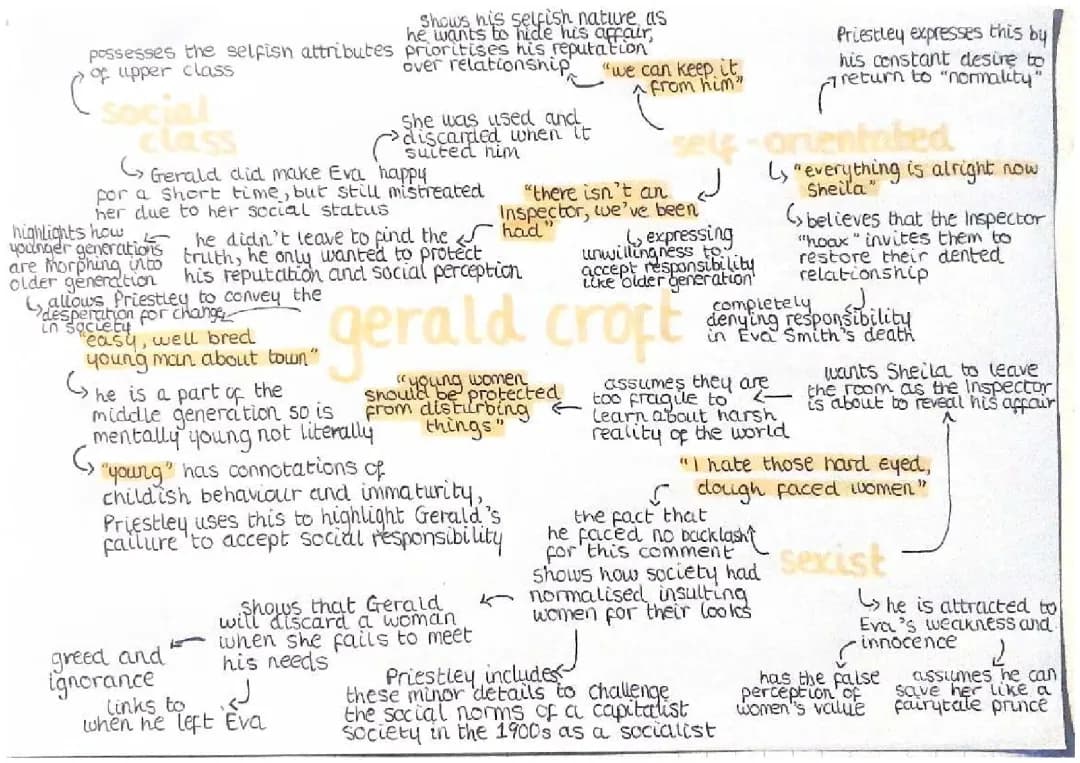 shows his selfish nature as
he wants to hide his affair,
prioritises his reputation
over relationship
"we can keep it
from him"
possesses the selfish attributes
of upper class
social
class
Gerald did make Eva happy
for a short time, but still mistreated
her due to her social status
she was used and
discarded when it
suited him
Priestley expresses this by
his constant desire to
return to "normality"
self-orientated
"everything is alright now
Sheila"
believes that the Inspector
"hoax" invites them to
restore their dented
relationship
completely
denying responsibility
in Eva Smith's death
"there isn't an
Inspector, we've been
had"
expressing
unwillingness to
accept responsibility
like older generation
he didn't leave to find the
truth, he only wanted to protect
his reputation and social perception
highlights how
younger generations
are morphing into
older generation
allows Priestley to convey the
desperation for change
in society
gerald croft
"easy, well bred
young man about town"
he is a part of the
middle generation so is
mentally young not literally
"young" has connotations of
childish behaviour and immaturity,
Priestley uses this to highlight Gerald's
failure to accept social responsibility
"young women
should be protected
from disturbing
things"
assumes they are
too fragile to
learn about harsh
reality of the world
wants Sheila to leave
the room as the Inspector
is about to reveal his affair
"I hate those hard eyed,
dough faced women"
sexist
the fact that
he faced no backlash
for this comment
shows how society had
normalised insulting
women for their looks
shows that Gerald
will discard a woman
when she fails to meet
his needs
greed and
ignorance
links to
when he left Eva
Priestley includes
these minor details to challenge
the social norms of a capitalist
society in the 1900s as a socialist
he is attracted to
Eva's weakness and
innocence
has the false
perception of
women's value
assumes he can
save her like a
fairytale prince